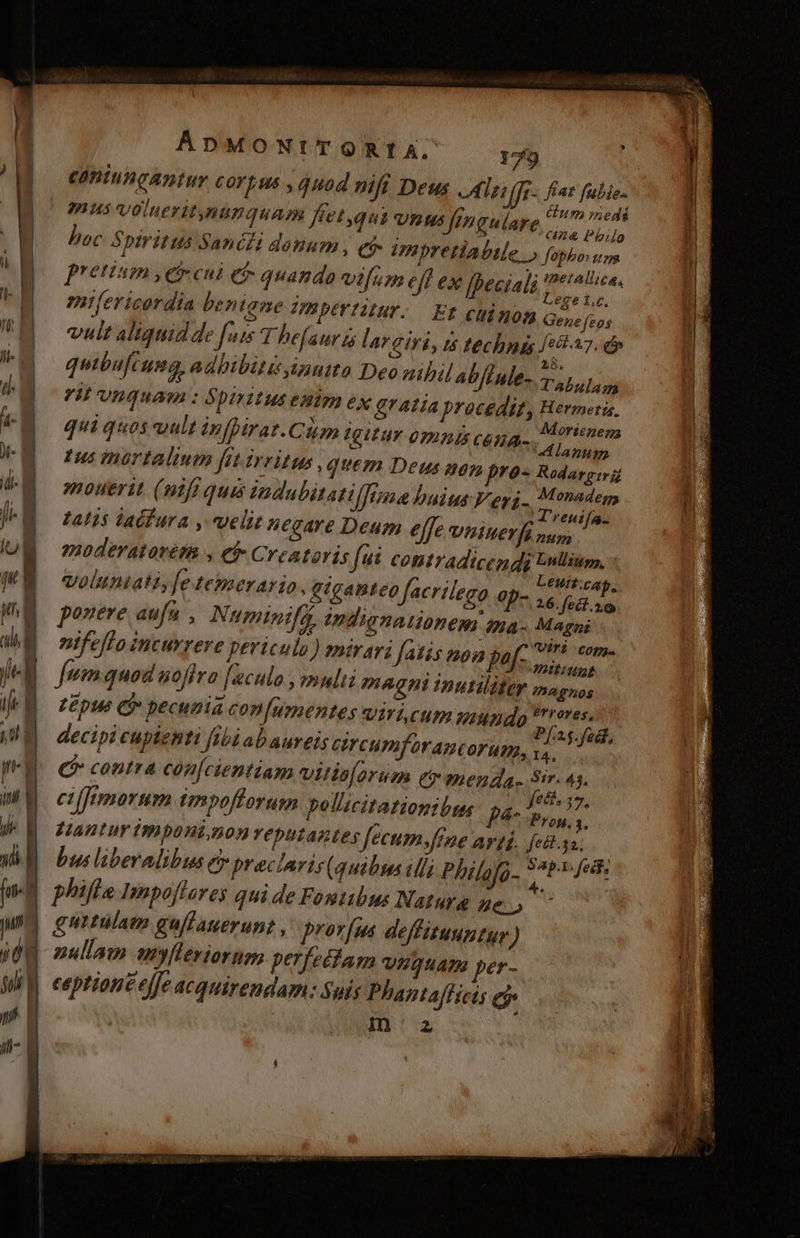 ADMONITORIA. 179
coniungantur corpus, quod nisi Deus Altissi-
mus voluerit, nunquam fiet, qui vnus singulare
hoc Spiritus Sancti donum, & impretiabile
pretium, & cui & quando visum est ex speciali
misericordia benigne impertitur. Et cui non
vult aliquid de suis Thesauris largiri, is technis
quibuscunq, adhibitis, inuito Deo nihil abstule-
rit vnquam: Spiritus enim ex gratia procedit,
qui quos vult inspirat. Cùm igitur omnis cona-
tus mortalium sit irritus, quem Deus non pro-
mouerit (nisi quis indubitatissima huius Veri-
tatis iactura, velit negare Deum esse vniuersi
moderatorem, & Creatoris sui contradicendi
voluntati, se temerario, giganteo sacrilego op-
ponere ausu, Numinisq, indignationem ma-
nifesto incurrere periculo) mirari satis non pos-
sum quod nostro saeculo, multi magni inutiliter
tēpus & pecuniā consumentes viri, cum mundo
decipi cupienti sibi ab aureis circumforaneorum,
& contra conscientiam vitiosorum & menda-
cissimorum impostorum pollicitationibus pa-
tiantur imponi, non reputantes secum, sine arti-
bus liberalibus & praeclaris (quibus illi Philoso-
phistae Impostores qui de Fontibus Naturae ne
guttulam gustauerunt, prorsus destituuntur)
nullam mysteriorum perfectam vnquam per-
ceptionē esse acquirendam: Suis Phantasticis &
m 2
fiat subie-
ctum medi
cinae Philo
sophorum
metallica.
Lege 1.c.
Geneseos
sect. 27. &
28.
Tabulam
Hermetis.
Morienem
Alanum
Rodargirū
Monadem
Treuisa-
num
Lullium.
Leuit: cap.
26. sect. 20
Magni
viri com-
mittunt
magnos
errores.
Psas. sect.
14.
Sir. 43.
sect. 37.
Prou. 3.
sect. 32.
Sap. 1. sect.
4.